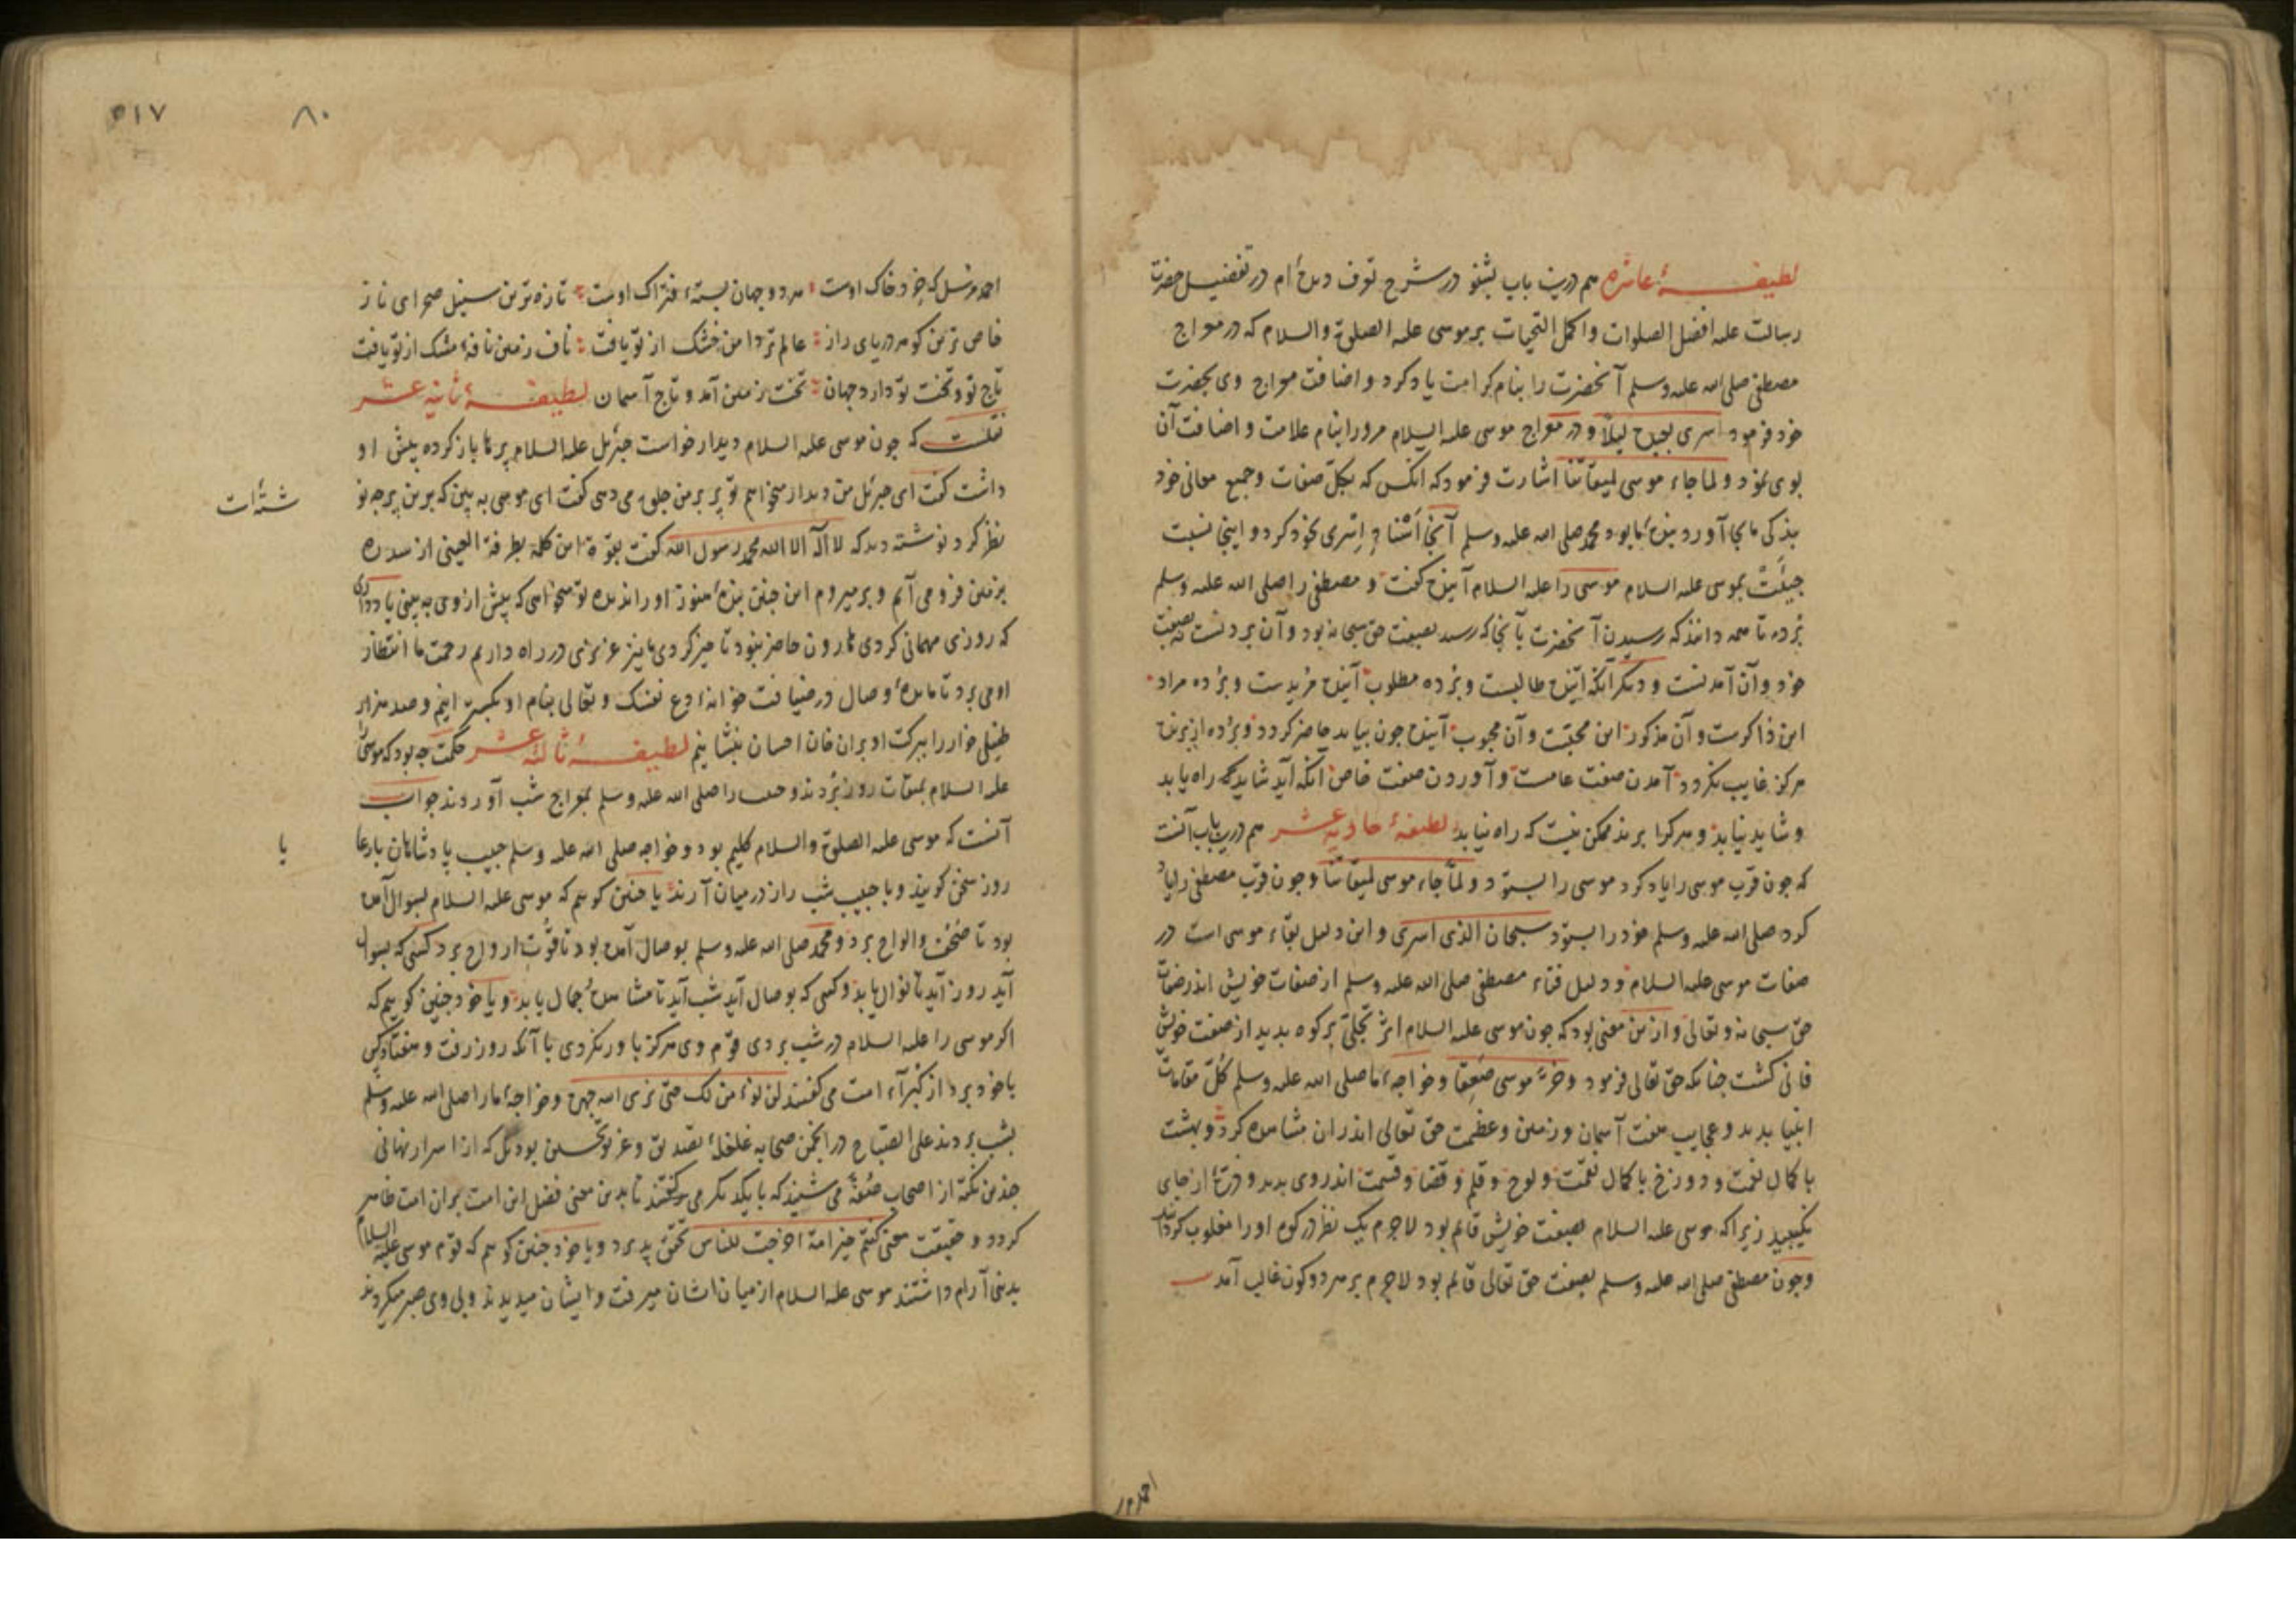 لطیفهٔ عاشره هم درین باب بشنو در شرح توقف دیده ام در تفضیل حضرت
رسالت علیه افضل الصلوات واکمل التحیات بر موسی علیه الصلوة والسلام که در معراج
مصطفی صلی الله علیه وسلم آنحضرت را بنام کرامت یاد کرد و اضافت معراج وی بحضرت
خود فرمود اسری بعبده لیلاً و در معراج موسی علیه السلام مرورا بنام علامت و اضافت آن
بوی نمود ولما جاء موسی لمیقاتنا اشارت فرمود که آنکس که بکل صفات و جمیع معانی خود
بندگی ما بجا آورد بندهٔ ما بود محمد صلی الله علیه وسلم آنجا اسری بخود کرد و اینجا نسبت
جیئت بموسی علیه السلام موسی را علیه السلام آینده گفت و مصطفی را صلی الله علیه وسلم
برده تا همه دانند که رسیدن آنحضرت بآنجا که رسید بصفت حق سبحانه بود و آن بردنست نه بصفت
خود و آن آمدنست و دیگر آنکه آینده طالبست و برده مطلوب آینده مریدست و برده مراد
این ذاکرست و آن مذکور این محبت و آن محبوب آینده چون بیاید حاضر گردد و برده از برنده
هرگز غایب نگردد آمدن صفت عامست و آوردن صفت خاص آنکه آید شاید که راه یابد
و شاید نیابد و هر کرا برند ممکن نیست که راه نیابد لطیفهٔ حادیه عشر هم درین باب آنست
که چون قرب موسی را یاد کرد موسی را بستود ولما جاء موسی لمیقاتنا و چون قرب مصطفی را یاد
کرد صلی الله علیه وسلم خود را بستود سبحان الذی اسری و این دلیل بقاء موسی است در
صفات موسی علیه السلام و دلیل فناء مصطفی صلی الله علیه وسلم از صفات خویش اندر صفات
حق سبحانه وتعالی و ازین معنی بود که چون موسی علیه السلام اثر تجلی بر کوه بدید از صفت خویش
فانی گشت چنانکه حق تعالی فرمود وخر موسی صعقا و خواجهٔ ما صلی الله علیه وسلم کل مقامات
انبیا بدید و عجایب هفت آسمان و زمین و عظمت حق تعالی اندران مشاهده کرد و بهشت
با کمال نعمت و دوزخ با کمال نقمت و لوح و قلم و قضا و قسمت اندر وی بدید و ذرهٔ از جای
نجنبید زیرا که موسی علیه السلام بصفت خویش قائم بود لاجرم یک نظر در کوه او را مغلوب گردانید
و چون مصطفی صلی الله علیه وسلم بصفت حق تعالی قائم بود لاجرم بر هر دو کون غالب آمد
احمد مرسل
۵۱۷
۸۰
احمد مرسل که خرد خاک اوست هر دو جهان بستهٔ فتراک اوست تازه ترین سنبل صحرای ناز
خاص ترین گوهر دریای راز عالم تردامن خشک از تو یافت ناف زمین نافهٔ مشک از تو یافت
تاج تو و تخت تو دارد جهان تخت زمین آمد و تاج آسمان لطیفهٔ ثانیه عشر
نقلست که چون موسی علیه السلام دیدار خواست جبرئیل علیه السلام پرها باز کرده پیش او
داشت گفت ای جبرئیل من دیدار میخواهم تو پر بر من جلوه می دهی گفت ای موسی به بین که برین پر چه
نظر کرد نوشته دید که لا اله الا الله محمد رسول الله گفت بقوة این کلمه بطرفة العینی از سدره
بزمین فرو می آیم و بر میروم این چنین بندهٔ هنوز او را ندیده تو میخواهی که پیش از وی به بینی یا
که روزی مهمانی کردی هارون حاضر نبود تاخیر کردی ما نیز عزیزی در راه داریم رحمت ما انتظار
او می برد تا مایدهٔ وصال در ضیافت خوانهٔ دع نفسک وتعال بنام او بگسترانیم و صد هزار
طفیلی خوار را ببرکت او بران خان احسان بنشانیم لطیفهٔ ثالثه عشر حکمت چه بود که موسی را
علیه السلام بمیقات روز بردند و حبیب را صلی الله علیه وسلم بمعراج شب آوردند جواب
آنست که موسی علیه الصلوة والسلام کلیم بود و خواجه صلی الله علیه وسلم حبیب پادشاهان با رعایا
روز سخن گویند و با حبیب شب راز در میان آرند یا چنین گوییم که موسی علیه السلام بسوال آمده
بود تا صحف والواح برد و محمد صلی الله علیه وسلم بوصال آمده بود تا قوت ارواح برد کسی که بسوال
آید روز آید تا نوال یابد و کسی که بوصال آید شب آید تا مشاهدهٔ جمال یابد و یا خود چنین گوییم که
اگر موسی را علیه السلام در شب بردی قوم وی هرگز باور نکردی با آنکه روز رفت و هفتاد کس
با خود برد از کبراء امت می گفتند لن نؤمن لک حتی نری الله جهرة و خواجهٔ ما را صلی الله علیه وسلم
بشب بردند علی الصباح در انجمن صحابه غلغلهٔ تصدیق و غریو تحسین بود بل که از اسرار نهانی
چندین نکته از اصحاب صفه می شنیدند که با یکدیگر می گفتند تا بدین معنی فضل این امت بران امت ظاهر
گردد و حقیقت معنی کنتم خیر امة اخرجت للناس تحقق پذیرد و یا خود چنین گوییم که قوم موسی علیه السلام
بدینی آرام داشتند موسی علیه السلام از میان ایشان میرفت و ایشان میدیدند و بی وی صبر میکردند
یا